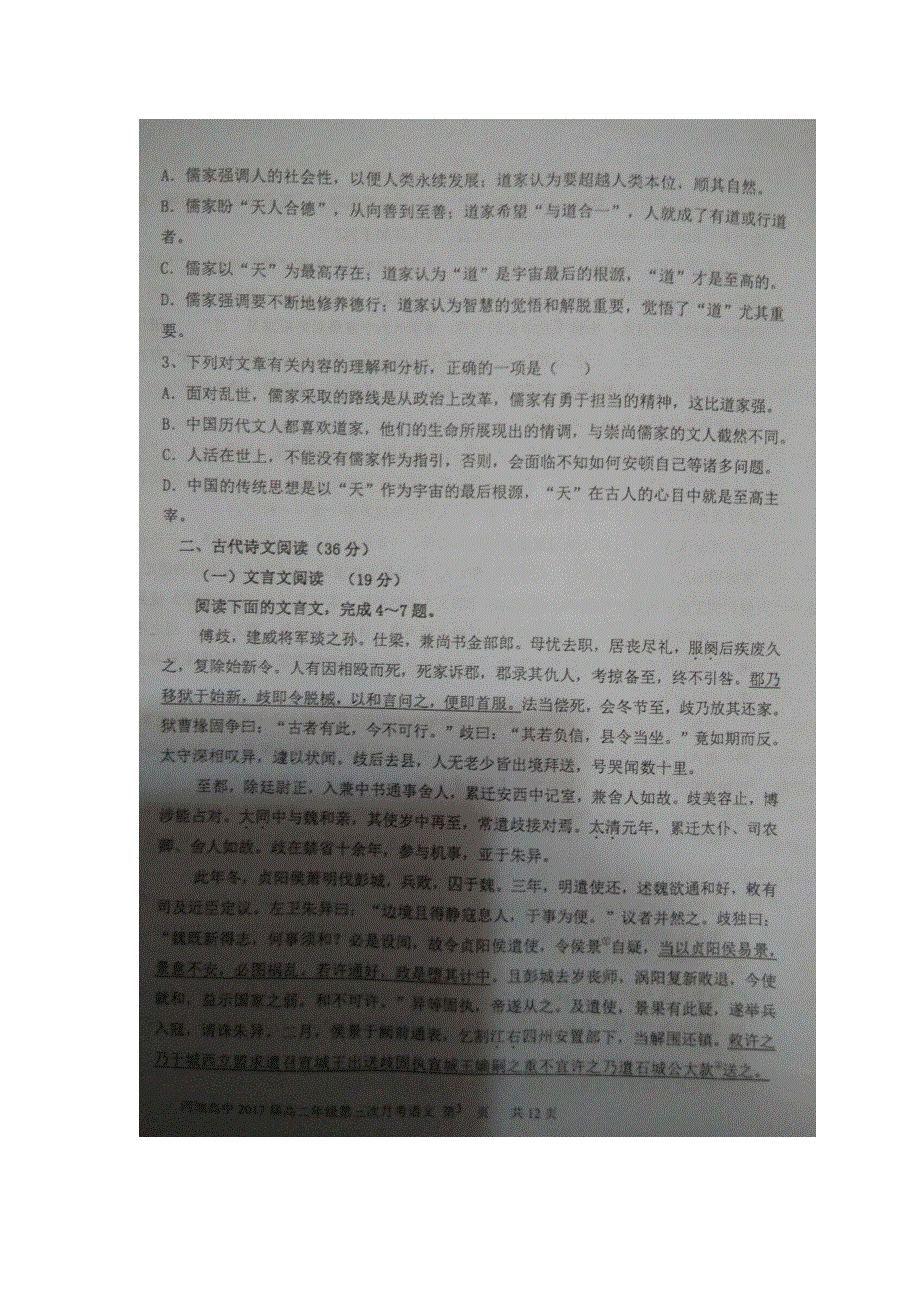 A．儒家强调人的社会性，以便人类永续发展；道家认为要超越人类本位，顺其自然。
B．儒家盼“天人合德”，从向善到至善；道家希望“与道合一”，人就成了有道或行道
者。
C．儒家以“天”为最高存在；道家认为“道”是宇宙最后的根源，“道”才是至高的。
D．儒家强调要不断地修养德行；道家认为智慧的觉悟和解脱重要，觉悟了“道”尤其重
要。
3、下列对文章有关内容的理解和分析，正确的一项是（ ）
A．面对乱世，儒家采取的路线是从政治上改革，儒家有勇于担当的精神，这比道家强。
B．中国历代文人都喜欢道家，他们的生命所展现出的情调，与崇尚儒家的文人截然不同。
C．人活在世上，不能没有儒家作为指引，否则，会面临不知如何安顿自己等诸多问题。
D．中国的传统思想是以“天”作为宇宙的最后根源，“天”在古人的心目中就是至高主
宰。
二、古代诗文阅读(36 分)
（一）文言文阅读 （19 分）
阅读下面的文言文，完成 4～7 题。
傅歧，建威将军琰之孙。仕梁，兼尚书金部郎。母忧去职，居丧尽礼，服阕后疾废久
之，复除始新令。人有因相殴而死，死家诉郡，郡录其仇人，考掠备至，终不引咎。郡乃
移狱于始新，歧即令脱械，以和言问之，便即首服。法当偿死，会冬节至，歧乃放其还家。
狱曹掾固争曰：“古者有此，今不可行。”歧曰：“其若负信，县令当坐。”竟如期而反。
太守深相叹异，遽以状闻。歧后去县，人无老少皆出境拜送，号哭闻数十里。
至都，除廷尉正，入兼中书通事舍人，累迁安西中记室，兼舍人如故。歧美容止，博
涉能占对。大同中与魏和亲，其使岁中再至，常遣歧接对焉。太清元年，累迁太仆、司农
卿、舍人如故。歧在禁省十余年，参与机事，亚于朱异。
此年冬，贞阳侯萧明伐彭城，兵败，囚于魏。三年，明遣使还，述魏欲通和好，敕有
司及近臣定议。左卫朱异曰：“边境且得静寇息人，于事为便。”议者并然之。歧独曰：
“魏既新得志，何事须和？必是设间，故令贞阳侯遣使，令侯景①自疑，当以贞阳侯易景，
景意不安，必图祸乱。若许通好，政是堕其计中。且彭城去岁丧师，涡阳复新败退，今使
就和，益示国家之弱。和不可许。”异等固执，帝遂从之。及遣使，景果有此疑，遂举兵
入寇，请诛朱异。二月，侯景于阙前通表，乞割江右四州安置部下，当解围还镇。敕许之
乃于城西立盟求遣召宣城王出送歧固执宣城王嫡嗣之重不宜许之乃遣石城公大款②送之。
高中 2017 届高二年级第三次月考语文 第3 页 共 12 页